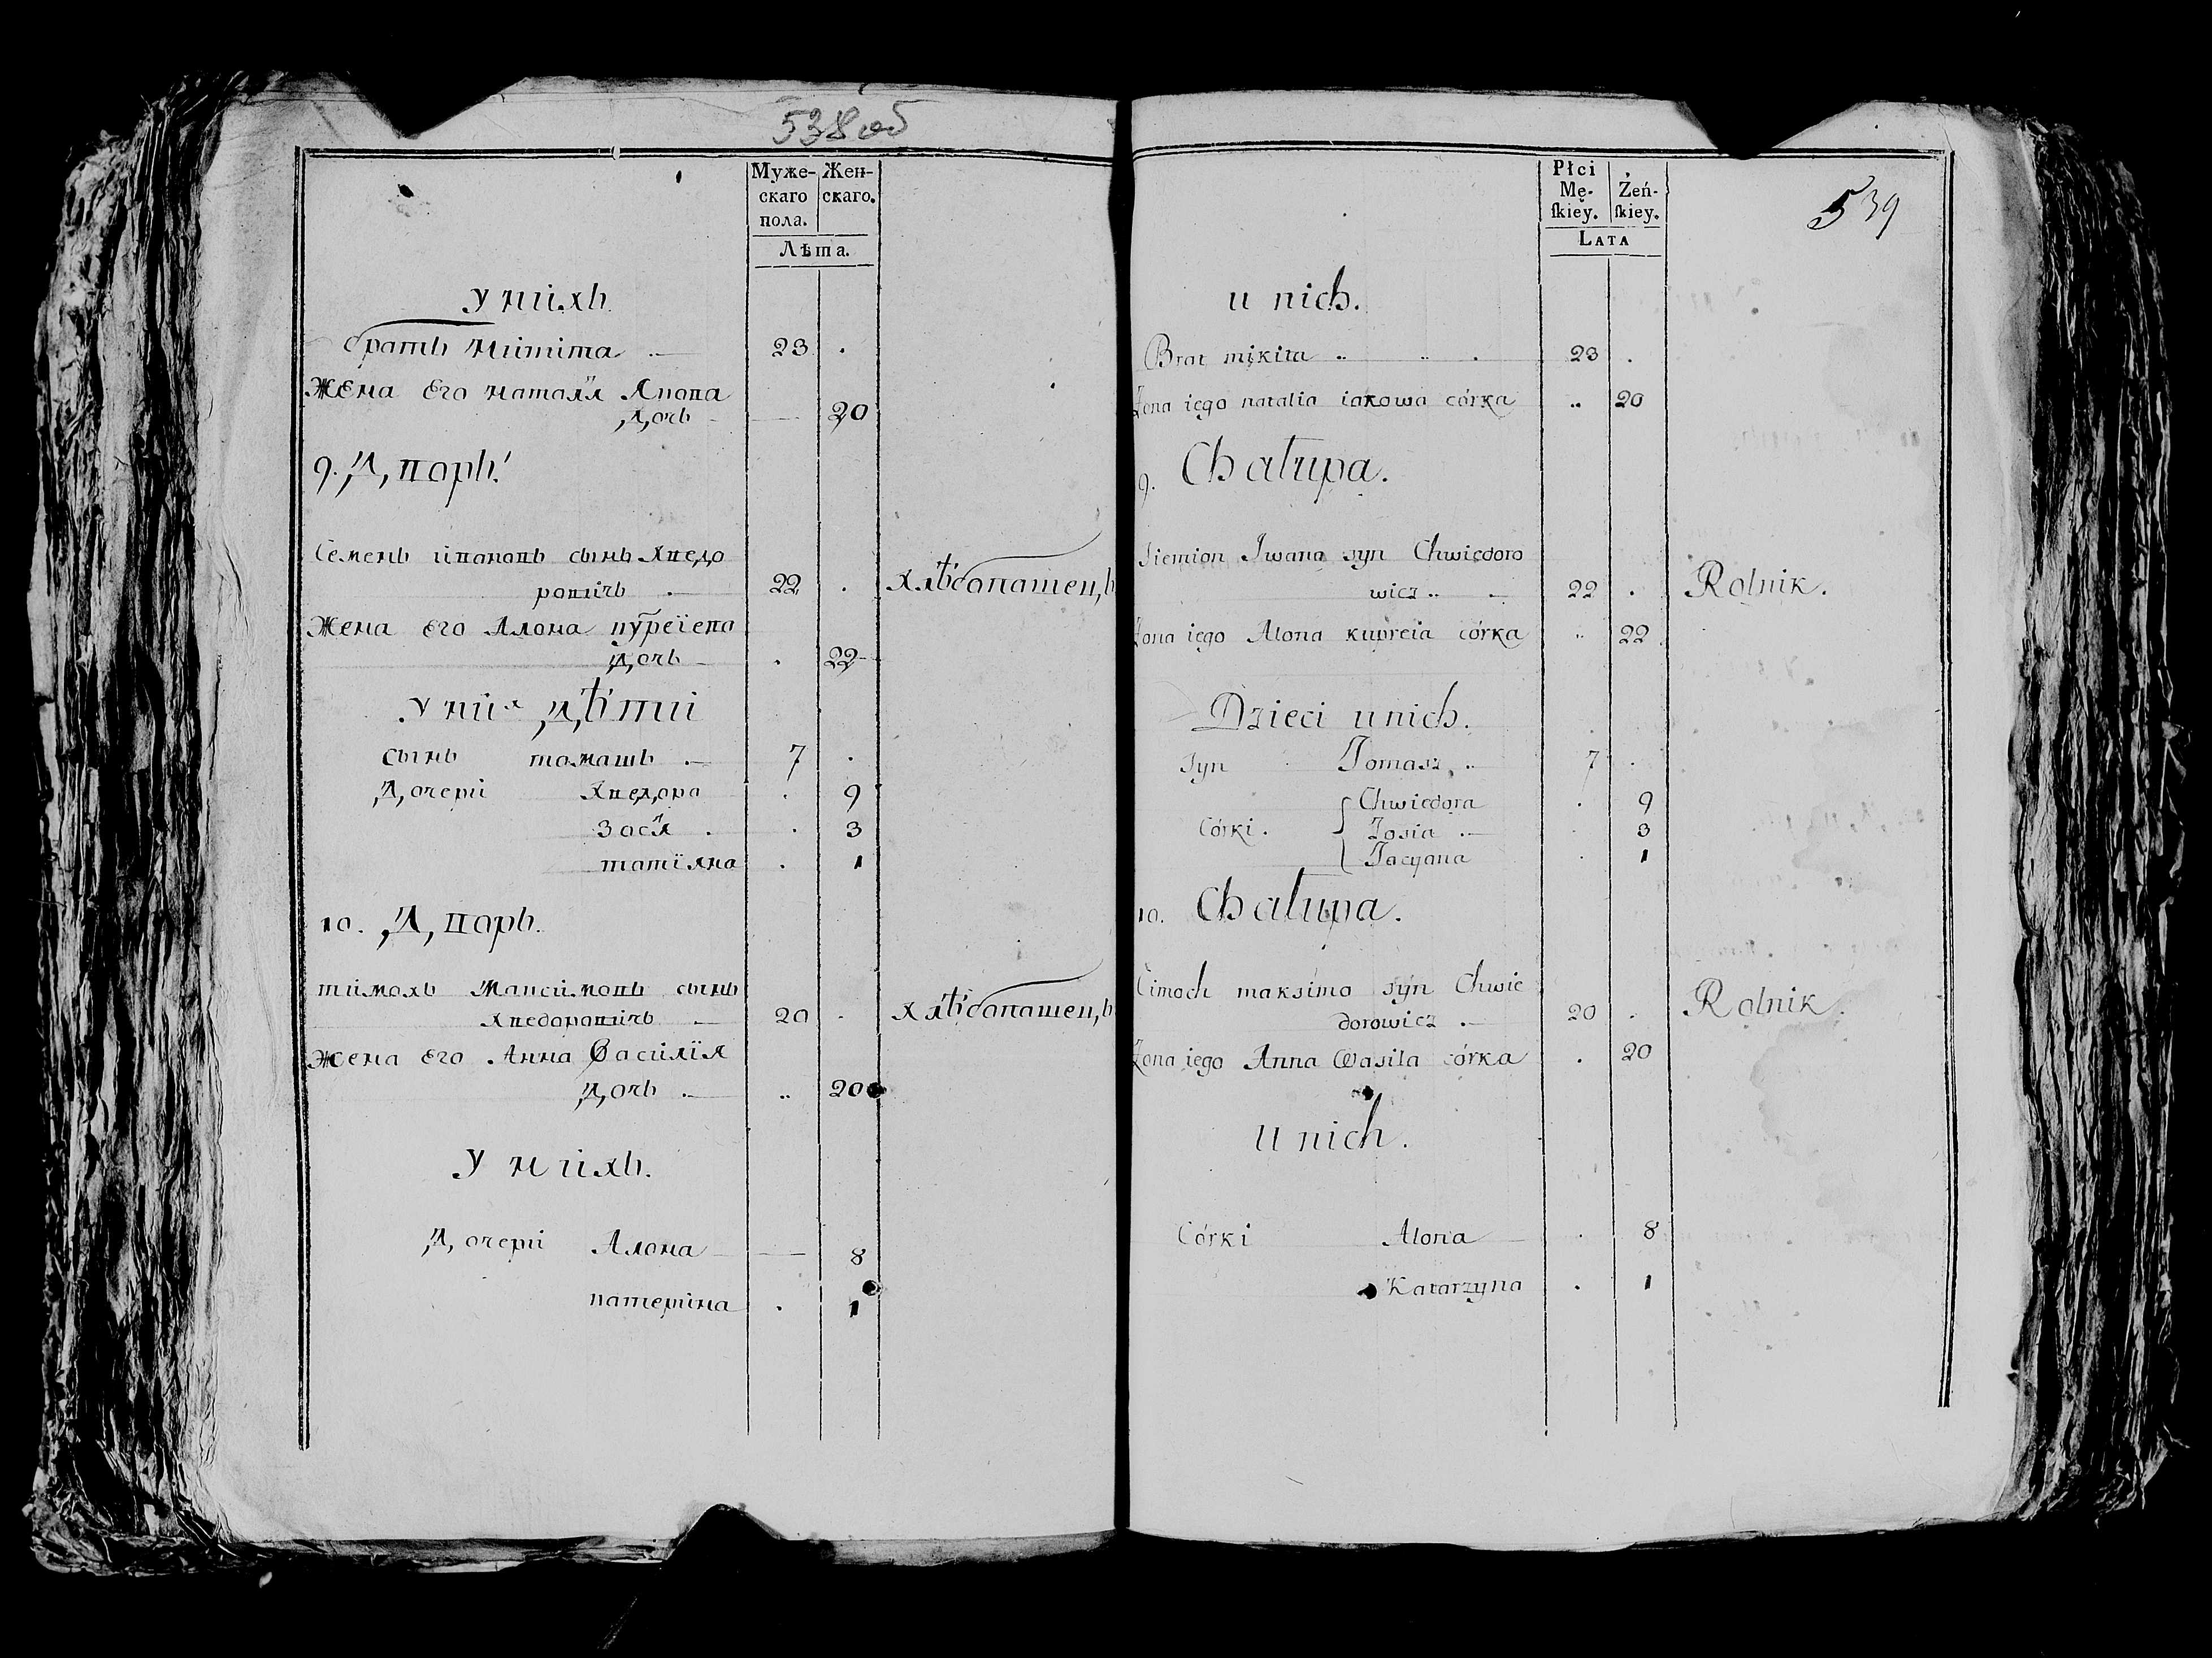 538 об
Муже-
скаго
пола.
Жен-
скаго.
Лѣта.
У нихъ
братъ микита 23
Жена Его наталія Якова
дочь 20
9. Дворъ.
Семенъ ивановъ сынъ Хведо
ровичъ 22 Хлѣбопашецъ
Жена Его Алона купреіева
дочь 22
У них дѣти
сынъ томашъ 7
дочери Хведора 9
Зосія 3
татіяна 1
10. Дворъ.
тимохъ Максимовъ сынъ
Хведоровичъ 20 Хлѣбопашецъ
Жена Его Анна Василія
дочь 20
У нихъ.
дочери Алона 8
катерина 1
Płci
Mę-
ſkiey.
Żeń-
ſkiey.
539
LATA
u nich.
Brat mikita 23
Żona iego natalia iakowa córka 20
9. Chałupa.
Siemion Iwana syn Chwiedoro
wicz 22 Rolnik.
Żona iego Alona kupreia córka 22
Dzieci u nich.
syn Tomasz 7
Córki. Chwiedora 9
Zosia 3
Tacyana 1
10. Chałupa.
Cimoch maksima syn Chwie
dorowicz 20 Rolnik.
Żona iego Anna Wasila córka 20
U nich.
Córki Alona 8
Katarzyna 1